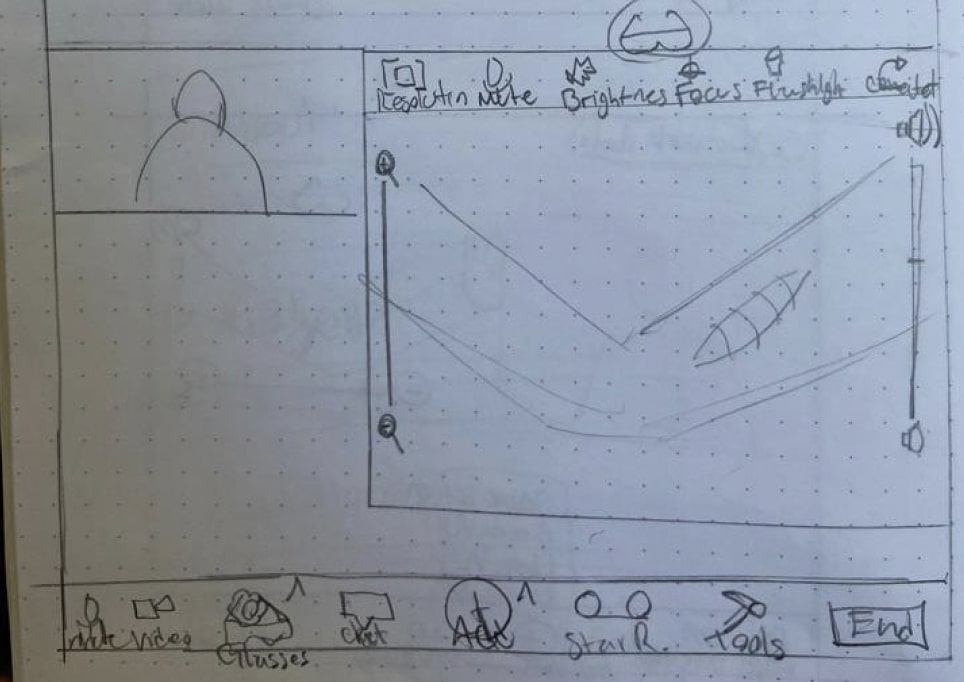 Resolutin Mute Brightnes Focus Flashlight
Mute Video Glasses Chat Add Star R. Tools End